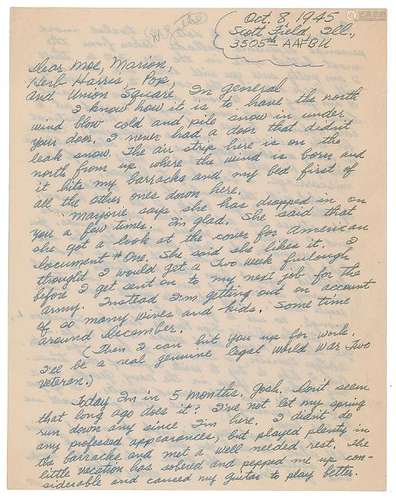 Oct. 8, 1945
Scott Field, Ill,
3505th AAFBU
Dear Moe, Marion,
Herb Harris, Pop,
And Union Square In general
I know how it is to have the north
wind blow cold and pile snow in under
your door. I never had a door that didnt
leak snow. The air strip here is on the
north from up where the wind is born and
it bite my barracks and my bed first of
all the other ones down here.
Marjorie says she has dropped in on
you a few times. I'm glad. She said that
she got a look at the cover for American
Document # One. She said she likes it. I
thought I would get a two week furlough
before I get sent on to my next job for the
army. Instead I'm getting out on account
of so many wives and kids. Some time
around December.
(Then I can hit you up for work.
I'll be a real genuine legal World War Two
veteran.)
Today I'm in 5 months. Gosh. Dont seem
that long ago does it? I've not let my spring
run down any since I'm here. I didn't do
any professed appearances, but played plenty in
the barracks and met a well needed rest. The
little vacation has sobered and pepped me up con-
siderable and caused my guitar to play better.